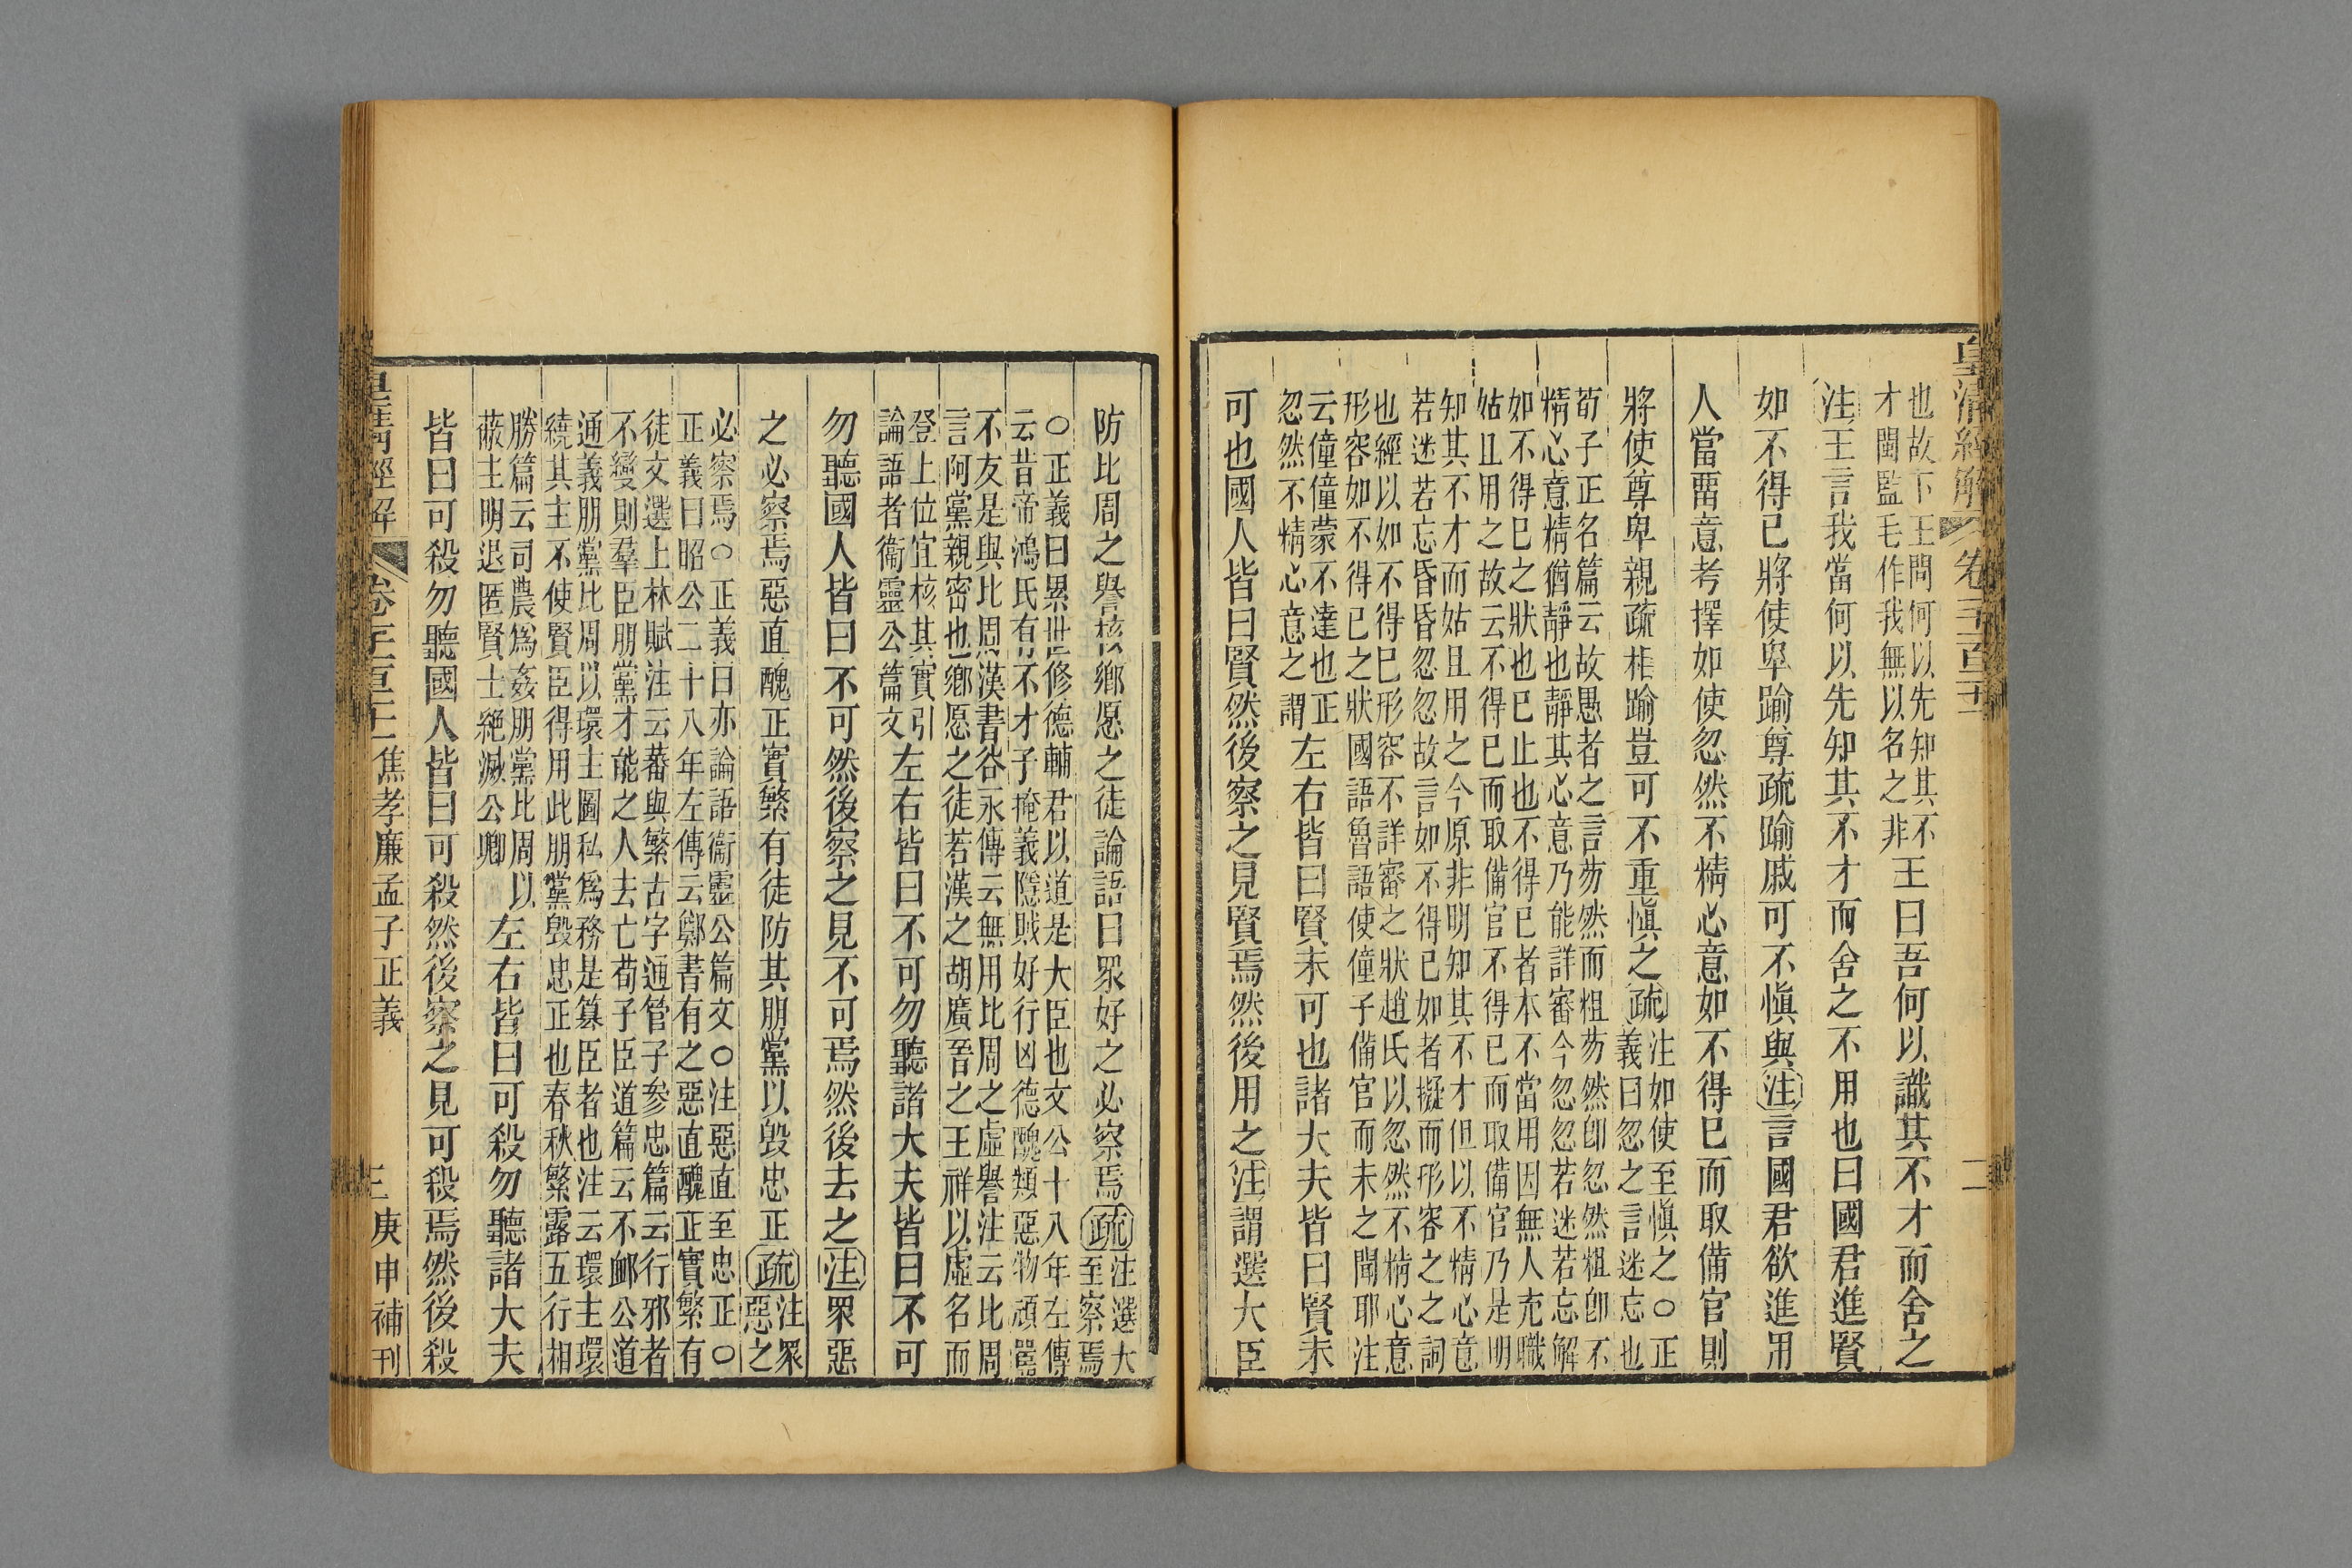 皇清經解
卷三百二十
二
也故下王問何以先知其不
才閩監毛作我無以名之非
王曰吾何以識其不才而舍之
注王言我當何以先知其不才而舍之不用也曰國君進賢
如不得已將使卑踰尊疏踰戚可不慎與注言國君欲進用
人當畱意考擇如使忽然不精心意如不得已而取備官則
將使尊卑親疏相踰豈可不重慎之疏
注如使至慎之○正
義曰忽之言迷忘也
荀子正名篇云故愚者之言芴然而粗芴然卽忽然粗卽不
精心意精猶靜也靜其心意乃能詳審今忽忽若迷若忘解
如不得已之狀也已止也不得已者本不當用因無人充職
姑且用之故云不得已而取備官不得已而取備官乃是明
知其不才而姑且用之今原非明知其不才但以不精心意
若迷若忘昏昏忽忽故言如不得已如者擬而形容之之詞
也經以如不得已形容不詳審之狀趙氏以忽然不精心意
形容如不得已之狀國語魯語使僮子備官而未之聞耶注
云僮僮蒙不達也正
忽然不精心意之謂
左右皆曰賢未可也諸大夫皆曰賢未
可也國人皆曰賢然後察之見賢焉然後用之注謂選大臣
防比周之譽核鄉愿之徒論語曰眾好之必察焉疏
注選大
至察焉
○正義曰累世修德輔君以道是大臣也文公十八年左傳
云昔帝鴻氏有不才子掩義隱賊好行凶德醜類惡物頑嚚
不友是與比周漢書谷永傳云無用比周之虛譽注云比周
言阿黨親密也鄉愿之徒若漢之胡廣晉之王祥以虛名而
登上位宜核其實引
論語者衞靈公篇文
左右皆曰不可勿聽諸大夫皆曰不可
勿聽國人皆曰不可然後察之見不可焉然後去之注眾惡
之必察焉惡直醜正實繁有徒防其朋黨以毀忠正疏
注眾
惡之
必察焉○正義曰亦論語衞靈公篇文○注惡直至忠正○
正義曰昭公二十八年左傳云鄭書有之惡直醜正實繁有
徒文選上林賦注云蕃與繁古字通管子參忠篇云行邪者
不變則羣臣朋黨才能之人去亡荀子臣道篇云不卹公道
通義朋黨比周以環主圖私爲務是篡臣者也注云環主環
繞其主不使賢臣得用此朋黨毀忠正也春秋繁露五行相
勝篇云司農爲姦朋黨比周以
蔽主明退匿賢士絕滅公卿
左右皆曰可殺勿聽諸大夫
皆曰可殺勿聽國人皆曰可殺然後察之見可殺焉然後殺
皇淸經解
卷三百二十
焦孝廉孟子正義
三
庚申補刊